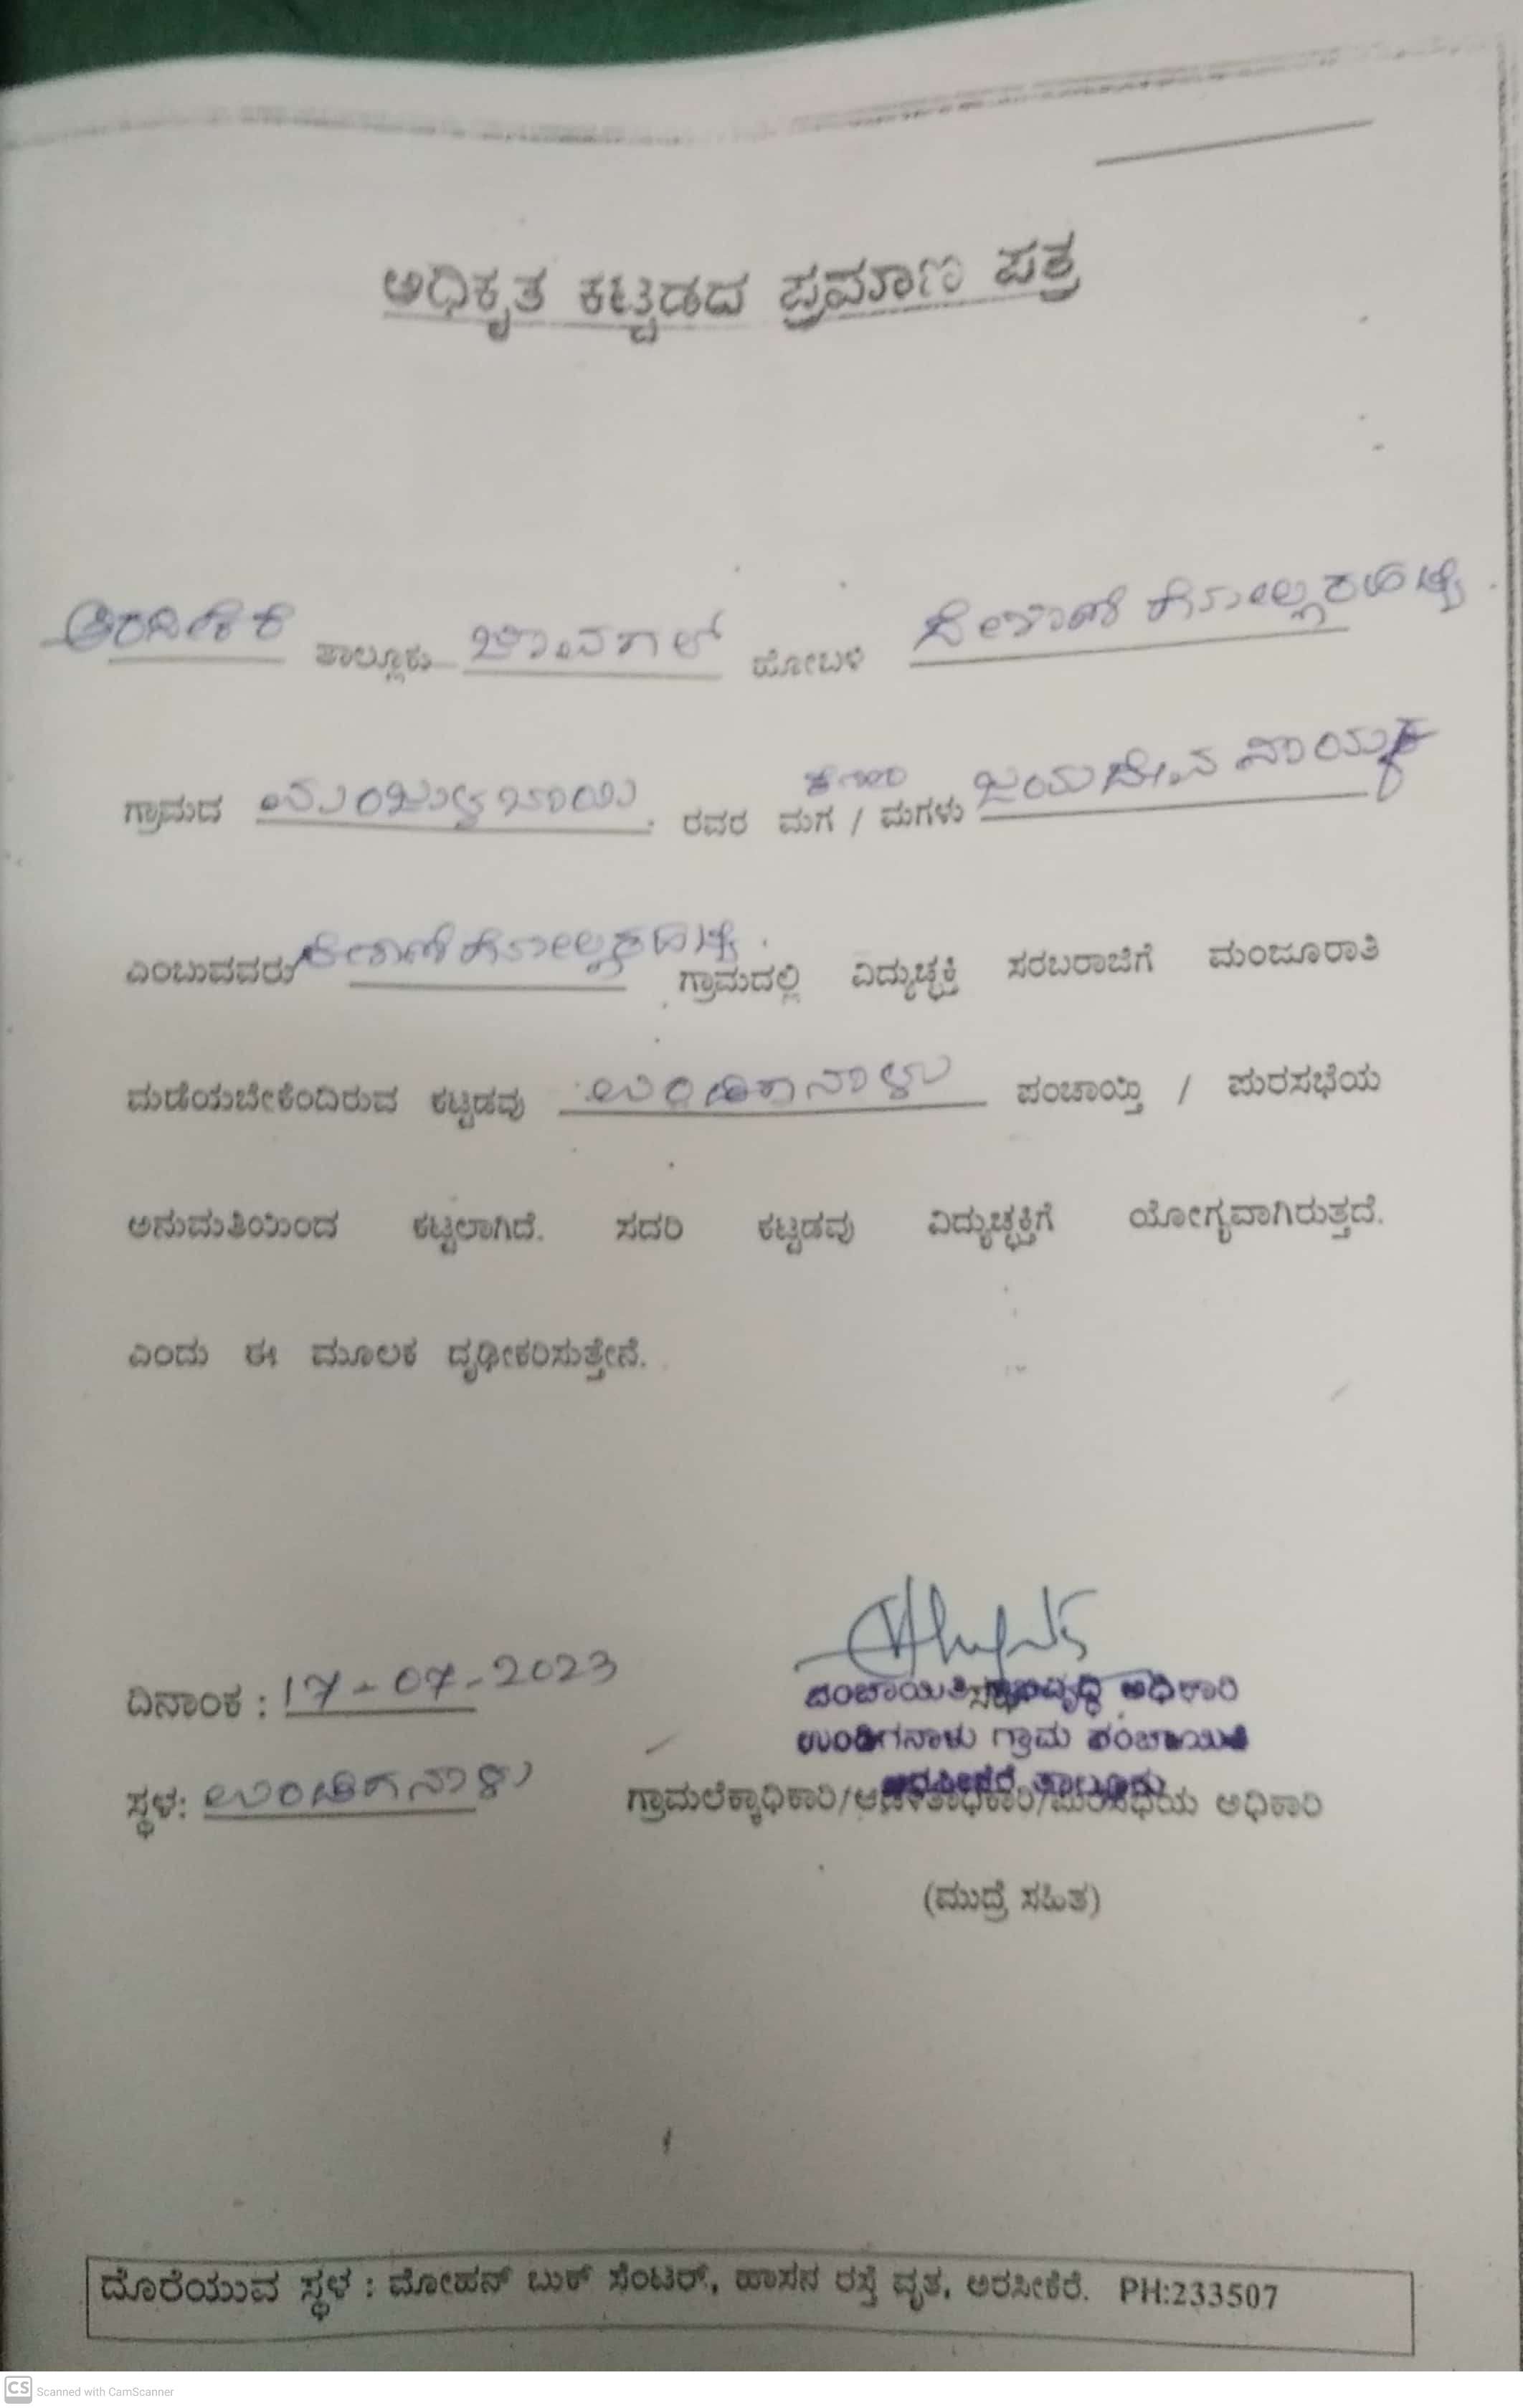 ಅಧಿಕೃತ ಕಟ್ಟಡದ ಪ್ರಮಾಣ ಪತ್ರ
ತಾಲ್ಲೂಕು ಜಾವಗಲ್ ಹೋಬಳಿ
ಗ್ರಾಮದ ಮಂಜುಳ ಬಾಯಿ ರವರ ಮಗ / ಮಗಳು ಜಯದೇವ ನಾಯ್ಕ
ಎಂಬುವವರು ಗ್ರಾಮದಲ್ಲಿ ವಿದ್ಯುಚ್ಛಕ್ತಿ ಸರಬರಾಜಿಗೆ ಮಂಜೂರಾತಿ
ಪಡೆಯಬೇಕೆಂದಿರುವ ಕಟ್ಟಡವು ಉಂಡಿಗನಾಳು ಪಂಚಾಯ್ತಿ / ಪುರಸಭೆಯ
ಅನುಮತಿಯಿಂದ ಕಟ್ಟಲಾಗಿದೆ. ಸದರಿ ಕಟ್ಟಡವು ವಿದ್ಯುಚ್ಛಕ್ತಿಗೆ ಯೋಗ್ಯವಾಗಿರುತ್ತದೆ.
ಎಂದು ಈ ಮೂಲಕ ದೃಢೀಕರಿಸುತ್ತೇನೆ.
ದಿನಾಂಕ : 17-07-2023
ಪಂಚಾಯಿತಿ ಅಭಿವೃದ್ಧಿ ಅಧಿಕಾರಿ
ಉಂಡಿಗನಾಳು ಗ್ರಾಮ ಪಂಚಾಯಿತಿ
ಅರಸೀಕೆರೆ ತಾಲ್ಲೂಕು
ಸ್ಥಳ: ಉಂಡಿಗನಾಳು ಗ್ರಾಮಲೆಕ್ಕಾಧಿಕಾರಿ/ಆಡಳಿತಾಧಿಕಾರಿ/ಪುರಸಭೆಯ ಅಧಿಕಾರಿ
(ಮುದ್ರೆ ಸಹಿತ)
ದೊರೆಯುವ ಸ್ಥಳ : ಮೋಹನ್ ಬುಕ್ ಸೆಂಟರ್, ಹಾಸನ ರಸ್ತೆ ವೃತ, ಅರಸೀಕೆರೆ. PH:233507
CS Scanned with CamScanner